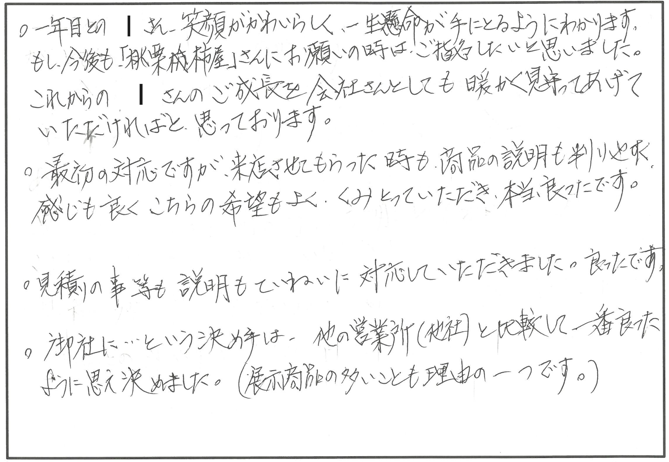 ○一年目との さん、笑顔がかわいらしく、一生懸命が手にとるようにわかります。
もし、今後も「桃栗柿屋」さんにお願いの時は、ご指名したいと思いました。
これからの さんのご成長を会社さんとしても暖かく見守ってあげて
いただければと思っております。
○最初の対応ですが、来店させてもらった時も、商品の説明も判りやすく、
感じも良くこちらの希望もよくくみとっていただき、本当良ったです。
○見積りの事等も説明もていねいに対応していただきました。良ったです。
○御社に…という決め手は、他の営業所(他社)と比較して一番良った
ように思え決めました。(展示商品の多いことも理由の一つです。)